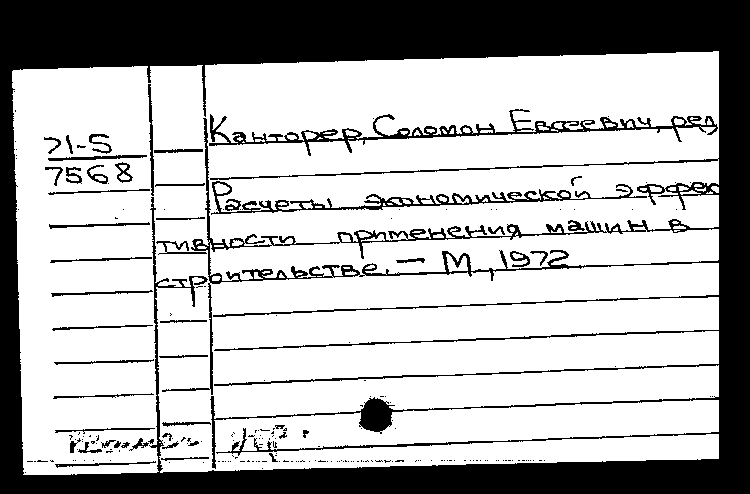 71-5
7568
Канторер, Соломон Евсеевич, ред
Расчеты экономической эффек
тивности применения машин в
строительстве. — М., 1972